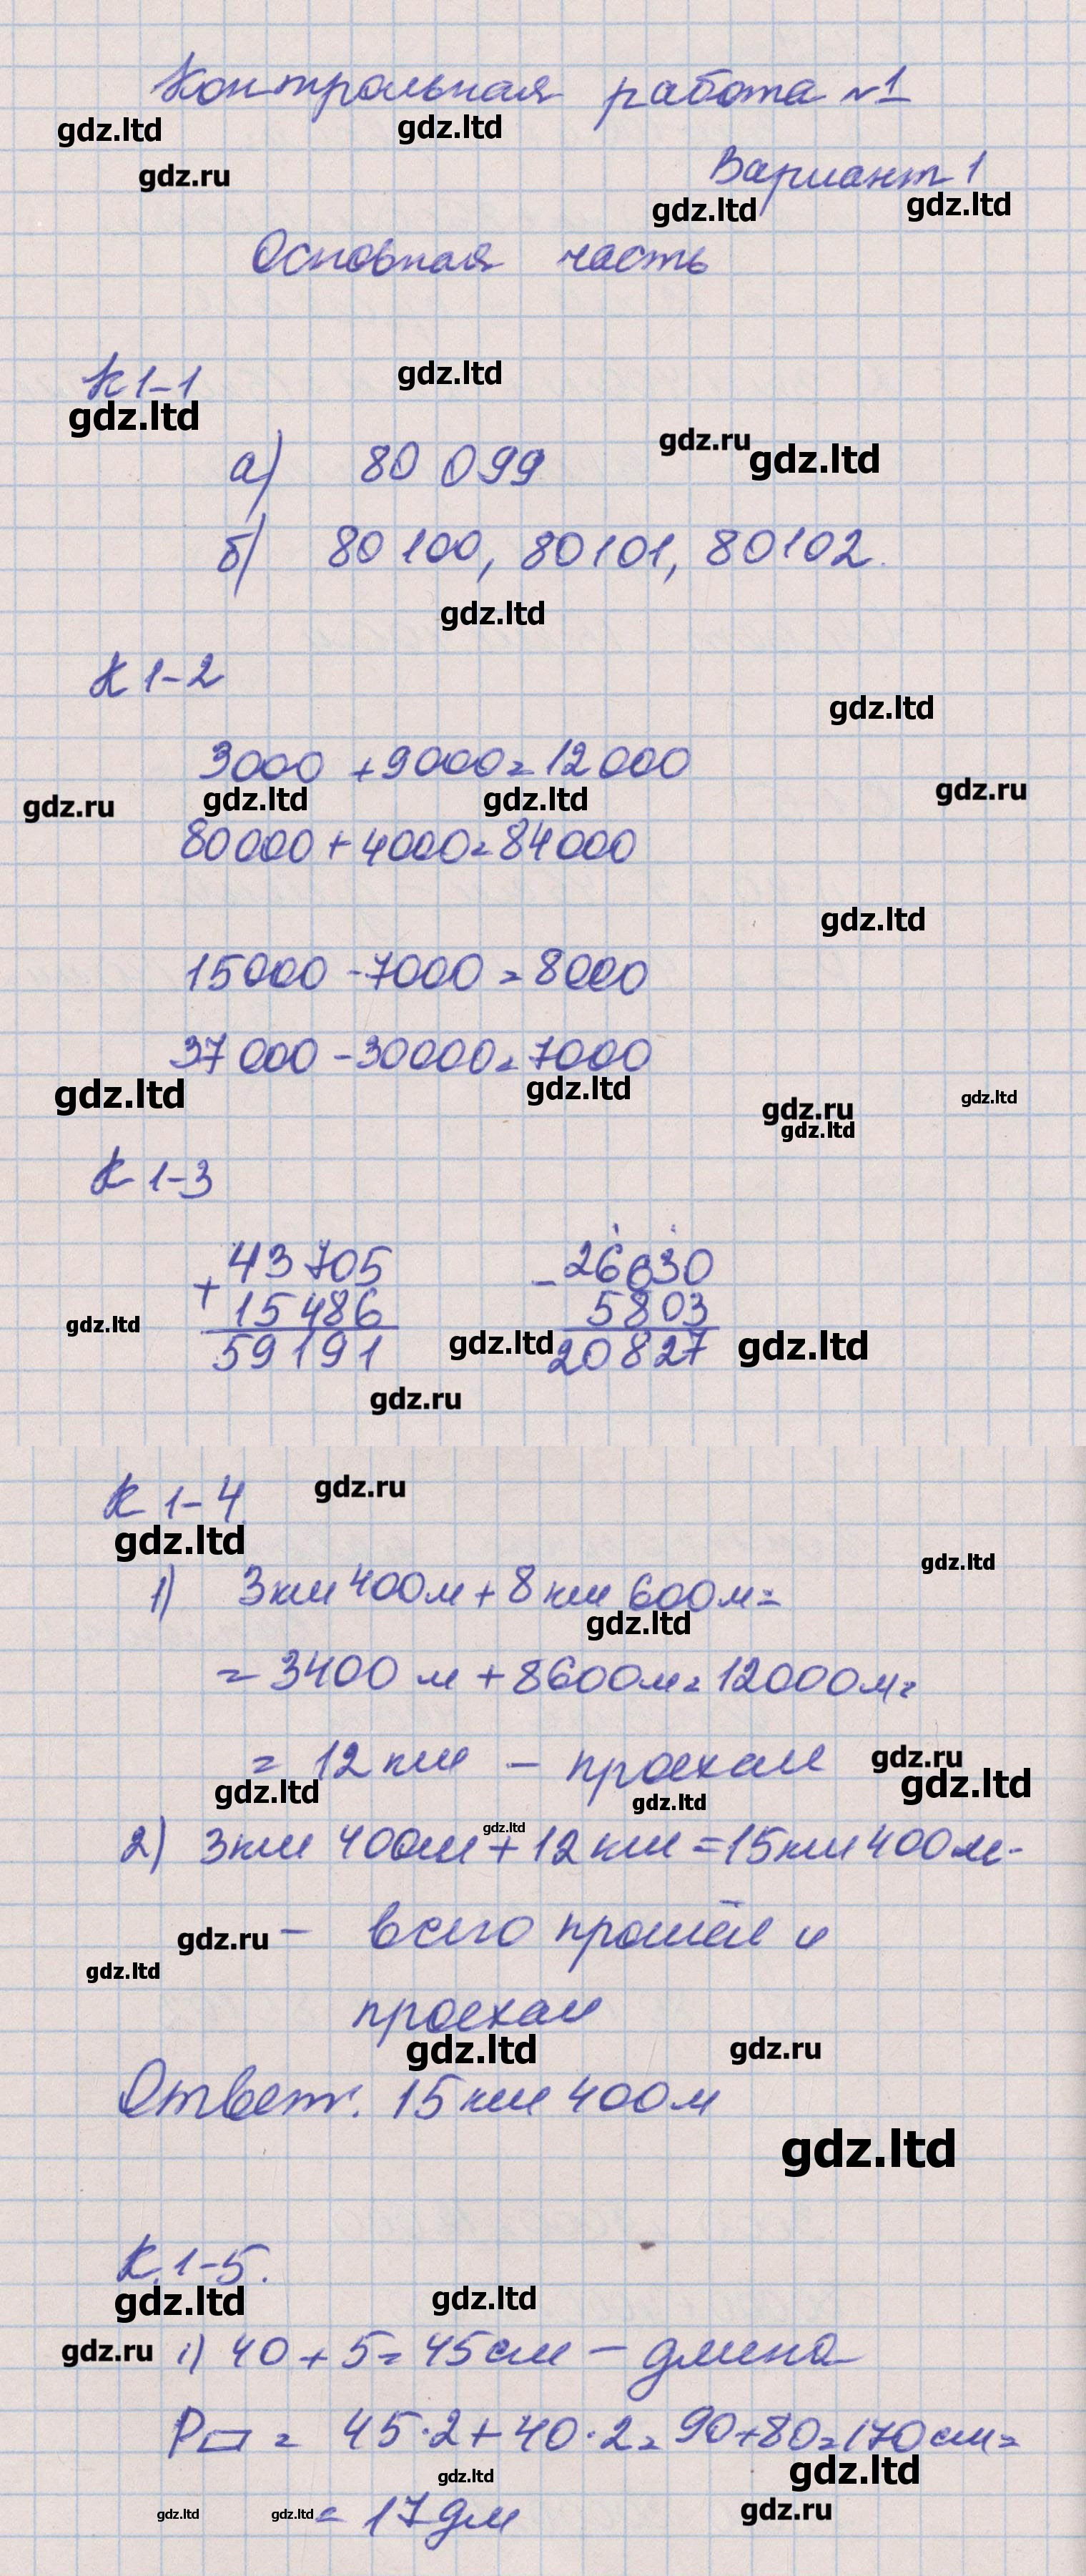 Контрольная работа №1
gdz.ltd gdz.ltd
Вариант 1
gdz.ru
gdz.ltd gdz.ltd
Основная часть
К 1-1
gdz.ltd
gdz.ltd
а) 80 099
gdz.ru gdz.ltd
б) 80 100, 80101, 80102.
gdz.ltd
К 1-2
gdz.ltd
3000 + 9000 = 12 000
gdz.ru gdz.ltd gdz.ltd gdz.ru
80000 + 4000 = 84000
gdz.ltd
15000 - 7000 = 8000
37 000 - 30000 = 7000
gdz.ltd gdz.ltd gdz.ltd
gdz.ru
gdz.ltd
К 1-3
43 705 - 26630
+ 15 486 5803
gdz.ltd
59191 gdz.ltd 20827 gdz.ltd
gdz.ru
К 1-4
gdz.ru
gdz.ltd
gdz.ltd
1) 3км 400м + 8км 600м =
gdz.ltd
= 3400 м + 8600м = 12000м =
= 12 км - проехал
gdz.ru
gdz.ltd gdz.ltd gdz.ltd
gdz.ltd
2) 3км 400м + 12 км = 15км 400м -
gdz.ru - всего прошёл и
gdz.ltd
проехал
gdz.ltd gdz.ru
Ответ: 15 км 400 м
gdz.ltd
К.1-5.
gdz.ltd gdz.ltd
gdz.ru 1) 40 + 5 = 45 см - длина
P▱ = 45·2 + 40·2 = 90 + 80 = 170 см =
gdz.ltd gdz.ltd
gdz.ltd gdz.ltd = 17 дм gdz.ru